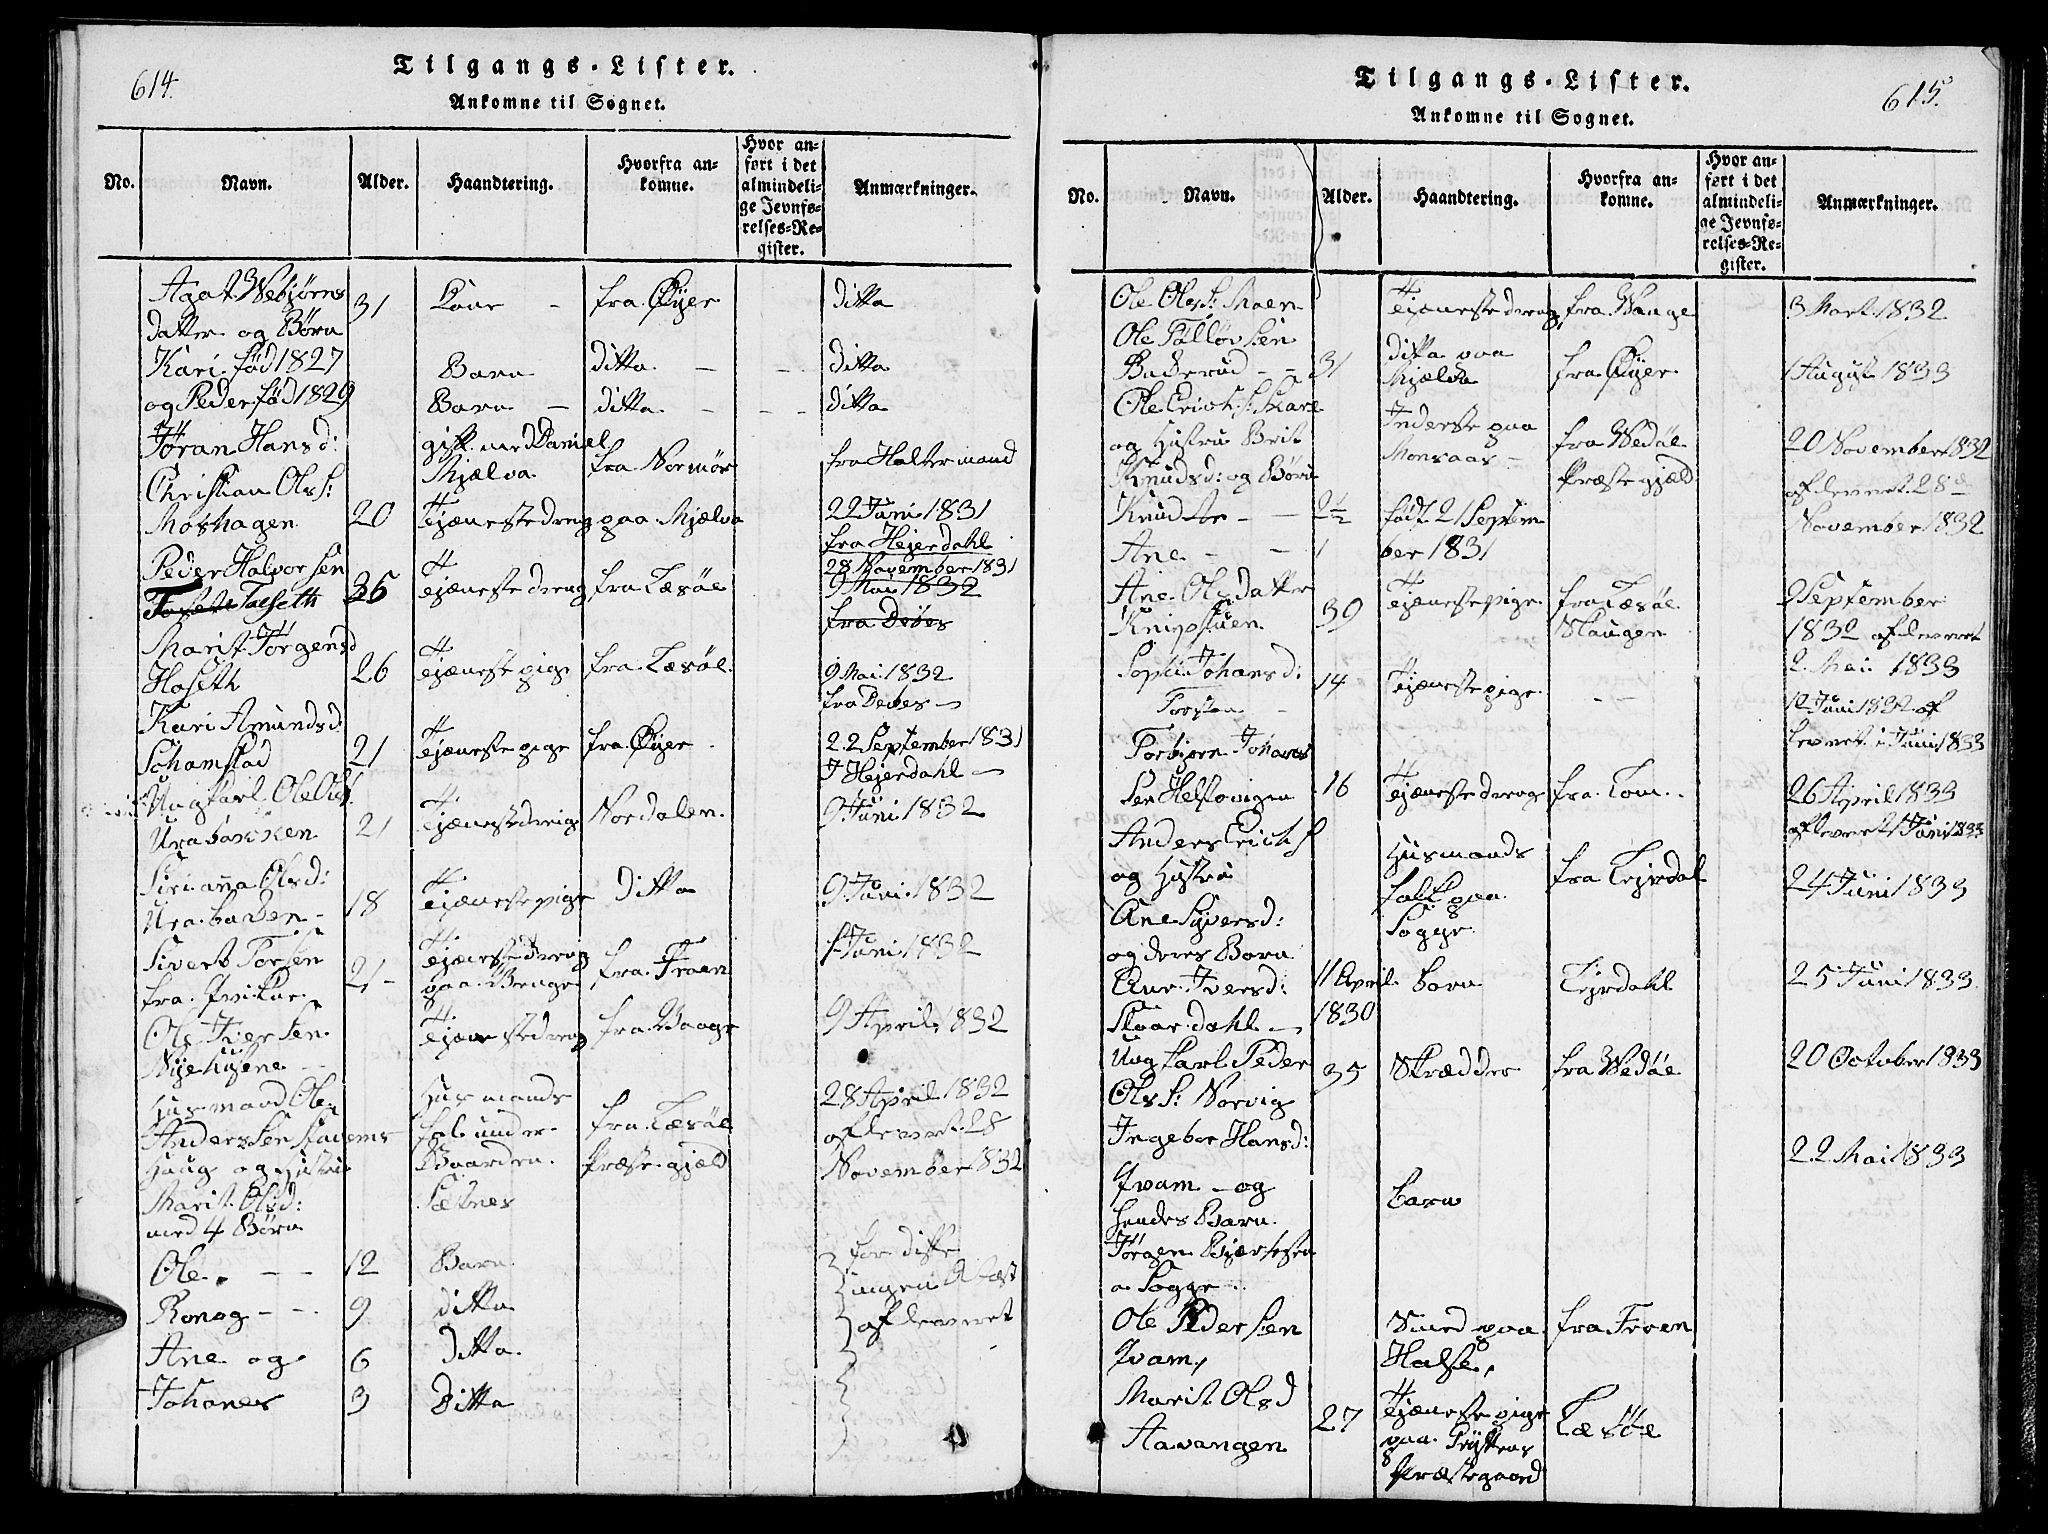 614.
Tilgangs-Lister.
Ankomne til Sognet.
No.
Navn.
Alder.
Haandtering.
Hvorfra an-
komne.
Hvor an-
ført i det
almindeli-
ge Jevnfø-
relses-Re-
gister.
Anmærkninger.
Agat Webjørns
datter og Børn
31
fra Øyer
ditto
Kari fød 1827
Barn
ditto
ditto
og Peder fød 1829
Barn
ditto
ditto
Jøran Hansd:
gift med Daniel
Mjælva
fra Normør
fra Haltermand
Christian Ols:
Moshagen
20
Tjenestedreng
paa Mjælva
22 Juni 1831
fra Hejerdahl
Peder Halvorsen
Talseth
35
Tjenestedreng
fra Læsøe
28 November 1831
9 Mai 1832
Marit Jørgensd
Hoseth
26
Tjenestepige
fra Læsøe
9 Mai 1832
Kari Amundsd
21
Tjenestepige
fra Øyer
22 September 1831
Hejerdahl
Ungkarl Ole Ols
Urabakken
21
Tjenestedreng
Nordalen
9 Juni 1832
Olsd:
Urabacken
18
Tjenestepige
Ditto
9 Juni 1832
Sivert Torsen
21
Tjenestedreng
paa Venge
fra Froen
Juni 1832
Ole Iversen
Nyehusene
Tjenestedreng
fra Vaage
9 April 1832
Husmand Ole
Andersen Stavems
Haug og Hustru
Marit Olsd:
med 4 Børn
Husmands
folk under
Gaarden
Sætnes
fra Læsøe
Præstegjæld
28 April 1832
afleveret 28
November 1832
Ole
12
Barn
Ronog
9
ditto
Ane og
6
ditto
Johanes
3
Ditto
for disse
ingen Attest
afleveret
615.
Tilgangs-Lister.
Ankomne til Sognet.
No.
Navn.
Alder.
Haandtering.
Hvorfra an-
komne.
Hvor an-
ført i det
almindeli-
ge Jevnfø-
relses-Re-
gister.
Anmærkninger.
Ole Ols: Moen
Tjenestedreng
3 Mart 1832
Ole Tølløvsen
Bækerud
31
ditto paa
Mjælva
fra Øyer
1 August 1833
Ole Erichs:
og Hustru Brit
Knudsd: og Børn
Inderste paa
Monsaas
fra Wedøe
Præstegjæld
20 November 1832
afleveret 28de
November 1832
Knud
2½
Ane
1
født 21 Septem
ber 1831
Ane Olsdatter
Knipstuen
39
Tjenestepige
fra Læsøe
Skaugen
9 September
1832 afleveret
2 Mai 1833
Johansd:
14
Tjenestepige
12 Juni 1832 af
leveret i Juni 1833
Torbjørn Johanes
sen
16
Tjenestedreng
fra Lom
26 April 1833
afleveret 1 Juni 1833
Anders Erichs
og Hustru
Ane Syversd:
og deres Barn
Husmands
folk paa
Sogge
fra Lejrdal
24 Juni 1833
Ane Iversd:
11 April
1830
barn
Lejrdahl
25 Juni 1833
Ungkarl Peder
Ols: Norvig
35
Skrædder
fra Wedøe
20 October 1833
Ingebor Hansd:
Qvam og
hendes Barn
barn
22 Mai 1833
Jørgen
Sogge
Ole Pedersen
Qvam,
Smed paa
Halse,
fra Froen
Marit Olsd
Aavangen
27
Tjenestepige
paa Gryttens
Præstegaard
Læsøe